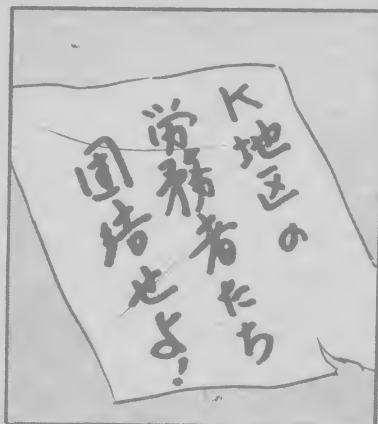 K地区の
労務者たち
団結せよ!